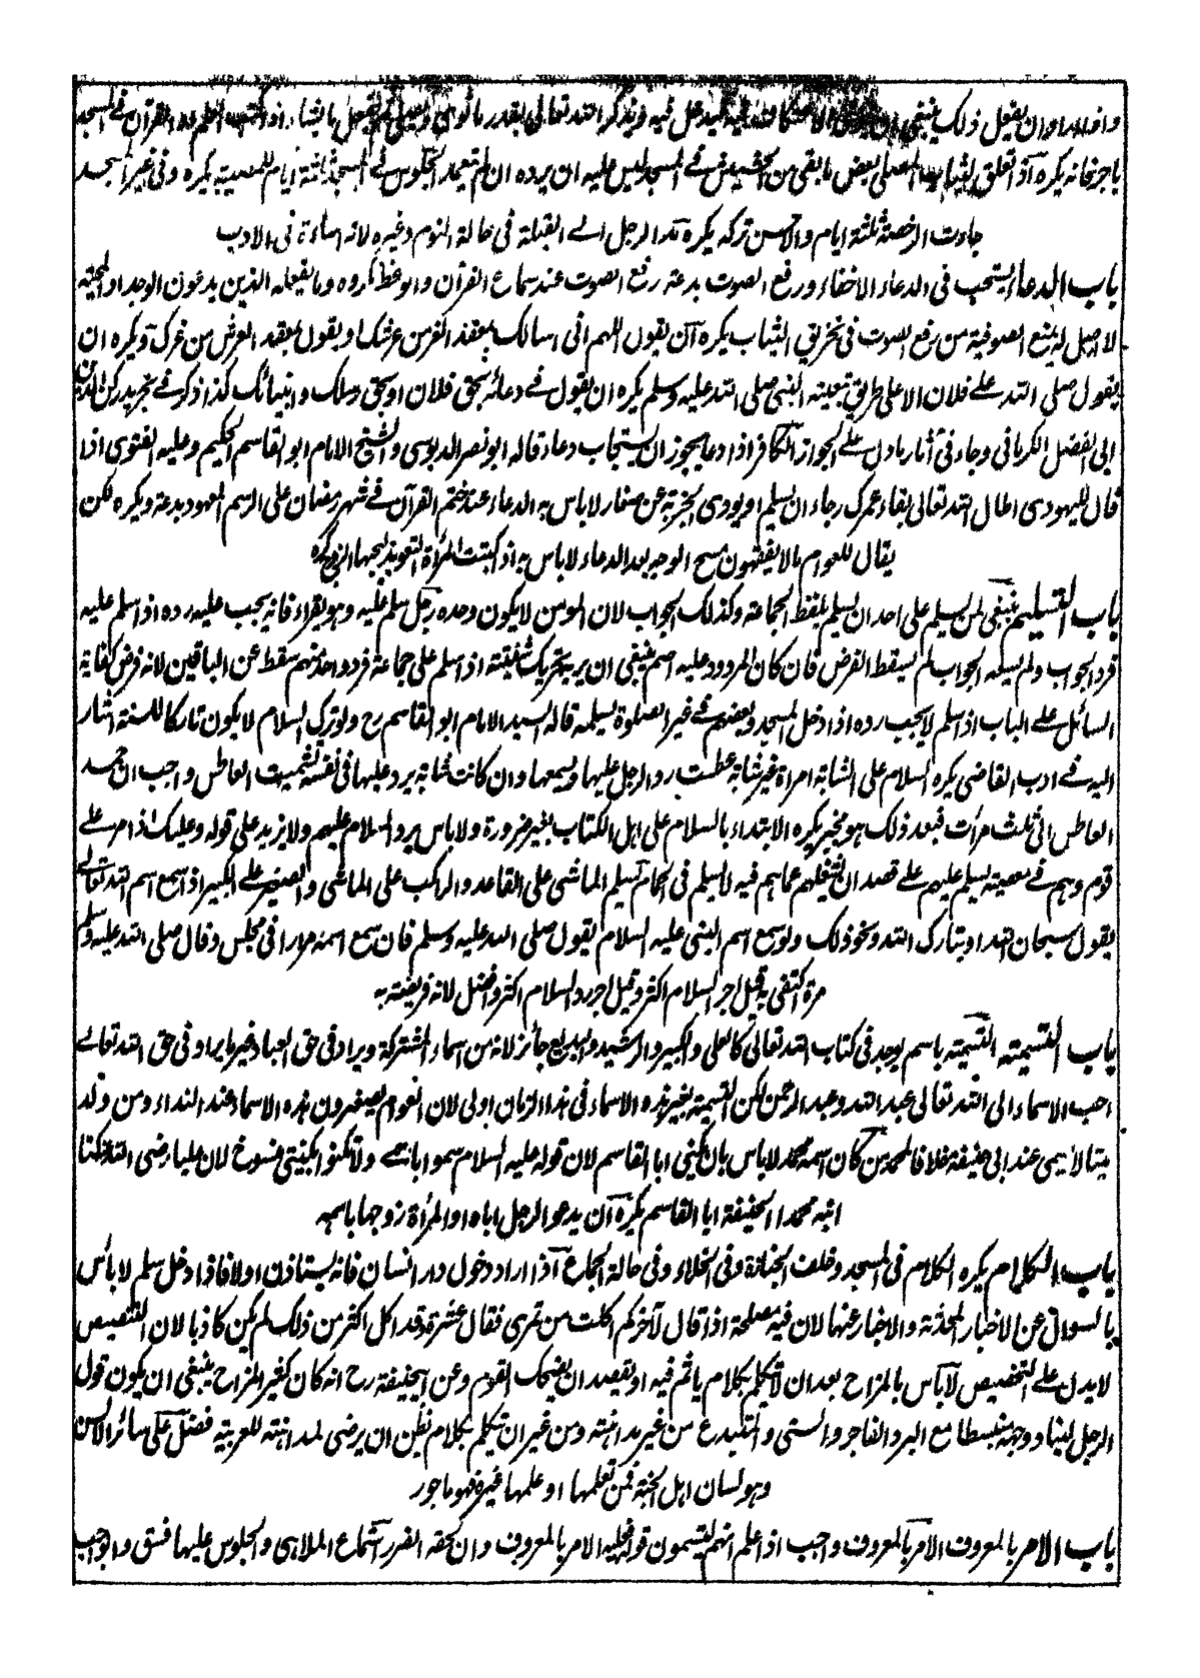 وان يفعل ذلك ينبغي فيه ويذكر الله تعالى بقدر ما نوى ويصلي ثم يفعل ما يشاء اذا القرآن في المسجد
باجر فانه يكره اذا تعلق بثياب المصلي بعض ما يقى من الحشيش في المسجد ليس عليه ان يرده ان لم يتعمد الجلوس في المسجد ثلثة ايام للمصيبة يكره وفي غير المسجد
جاءت الرخصة ثلثة ايام والاحسن تركه يكره مد الرجل الى القبلة في حالة النوم وغيره لانه اساءة في الادب
باب الدعاء يستحب في الدعاء الاخفاء ورفع الصوت بدعة رفع الصوت عند سماع القرآن والوعظ مكروه وما يفعله الذين يدعون الوجد او المحبة
لا اصل له يمنع الصوفية من رفع الصوت في تخريق الثياب يكره ان يقول اللهم اني اسالك بمعقد العز من عرشك او يقول بمقعد العز من عزك ويكره ان
يقول صلى الله على فلان الا على طريق تبعية النبي صلى الله عليه وسلم يكره ان يقول في دعائه بحق فلان او بحق رسلك وانبيائك كذا ذكر في تجريد ركن الدين
ابي الفضل الكرماني وجاء في آثار ما دل على الجواز الكافر اذا دعا يجوز ان يستجاب دعاءه قاله ابو نصر الدبوسي والشيخ الامام ابو القاسم الحكيم وعليه الفتوى اذا
قال لليهودى اطال الله تعالى بقاء عمرك رجاء ان يسلم او يودى الجزية عن صغار لا باس به الدعاء عند ختم القرآن في شهر رمضان على الرسم المعهود بدعة ويكره لكن
يقال للعوام ما لا يفقهون مسح الوجه بعد الدعاء لا باس به اذا كتبت المرأة التعويذ ليحبها الزوج يكره
باب التسليم ينبغي لمن يسلم على احد ان يسلم بلفظ الجماعة وكذلك الجواب لان المومن لا يكون وحده رجل سلم عليه وهو يقراء فانه يجب عليه رده اذا سلم عليه
فرد الجواب ولم يسمعه الجواب لم يسقط الفرض فان كان المردود عليه اصم ينبغي ان يريه تحريك شفتيه اذا سلم على جماعة فرد واحد منهم سقط عن الباقين لانه فرض كفاية
السائل على الباب اذا سلم لا يجب رده اذا دخل المسجد وبعضهم في غير الصلوة يسلم قاله السيد الامام ابو القاسم رح ولو ترك السلام لا يكون تاركا للسنة اشار
اليه في ادب القاضي يكره السلام على الشابة امراة غير شابة عطست رد الرجل عليها ويسمعها وان كانت شابة يرد عليها في نفسه تشميت العاطس واجب ان حمد
العاطس الى ثلث مرات فبعد ذلك هو مخير يكره الابتداء بالسلام على اهل الكتاب بغير ضرورة ولا باس برد السلام عليهم ولا يزيد على قوله وعليك اذا مر على
قوم وهم في معصية يسلم عليهم على قصد ان يشغلهم عما هم فيه لا يسلم في الحمام يسلم الماشي على القاعد والراكب على الماشي والصغير على الكبير اذا سمع اسم الله تعالى
يقول سبحان الله او تبارك الله ونحو ذلك ولو سمع اسم النبي عليه السلام يقول صلى الله عليه وسلم فان سمع اسمه مرارا في مجلس وقال صلى الله عليه وسلم
مرة اكتفى به قيل اجر السلام اكثر وقيل اجر رد السلام اكثر وافضل لانه فريضة به
باب التسمية التسمية باسم يوجد في كتاب الله تعالى كالعلي والكبير والرشيد والبديع جائز لانه من اسماء المشتركة ويراد في حق العباد غير ما يراد في حق الله تعالى
احب الاسماء الى الله تعالى عبد الله وعبد الرحمن لكن التسمية بغير هذه الاسماء في هذا الزمان اولى لان العوام يصغرون هذه الاسماء عند النداء ومن ولد
ميتا لا يسمى عند ابي حنيفة خلافا لمحمد من كان اسمه محمد لا باس بان يكنى ابا القاسم لان قوله عليه السلام سموا باسمي ولا تكنوا بكنيتي منسوخ لان عليا رضى الله كنا
ابنه محمدا الحنيفة ابا القاسم يكره ان يدعو الرجل اباه او المرأة زوجها باسمه
باب الكلام يكره الكلام في المسجد وخلف الجنازة وفي الخلاء وفي حالة الجماع اذا اراد دخول دار انسان فانه يستاذن اولا فاذا دخل سلم لا باس
بالسوال عن الاخبار المحدثة والاخبار عنها لان فيه مصلحة اذا قال لآخر كم اكلت من تمرى فقال عشرة وقد اكل اكثر من ذلك لم يكن كاذبا لان التخصيص
لا يدل على التخصيص لا باس بالمزاح بعد ان لا يتكلم بكلام ياثم فيه او يقصد ان يضحك القوم وعن ابيحنيفة رح انه كان كثير المزاح ينبغي ان يكون قول
الرجل لينا ووجهه منبسطا مع البر والفاجر والسني والمبتدع من غير مداهنة ومن غير ان يتكلم بكلام يظن ان يرضى لمداهنته للعربية فضل على سائر الالسن
وهو لسان اهل الجنة فمن تعلمها او علمها غيره فهو ماجور
باب الامر بالمعروف الامر بالمعروف واجب اذا علم انهم يستمعون قوله فعليه الامر بالمعروف وان لحقه الضرر استماع الملاهي والجلوس عليها فسق والواجب